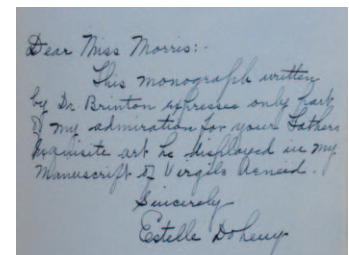 Dear Miss Morris:-
This monograph written
by Dr Brinton expresses only part
of my admiration for your Fathers
exquisite art he displayed in my
Manuscript of Virgils Aeneid.
Sincerely
Estelle Doheny